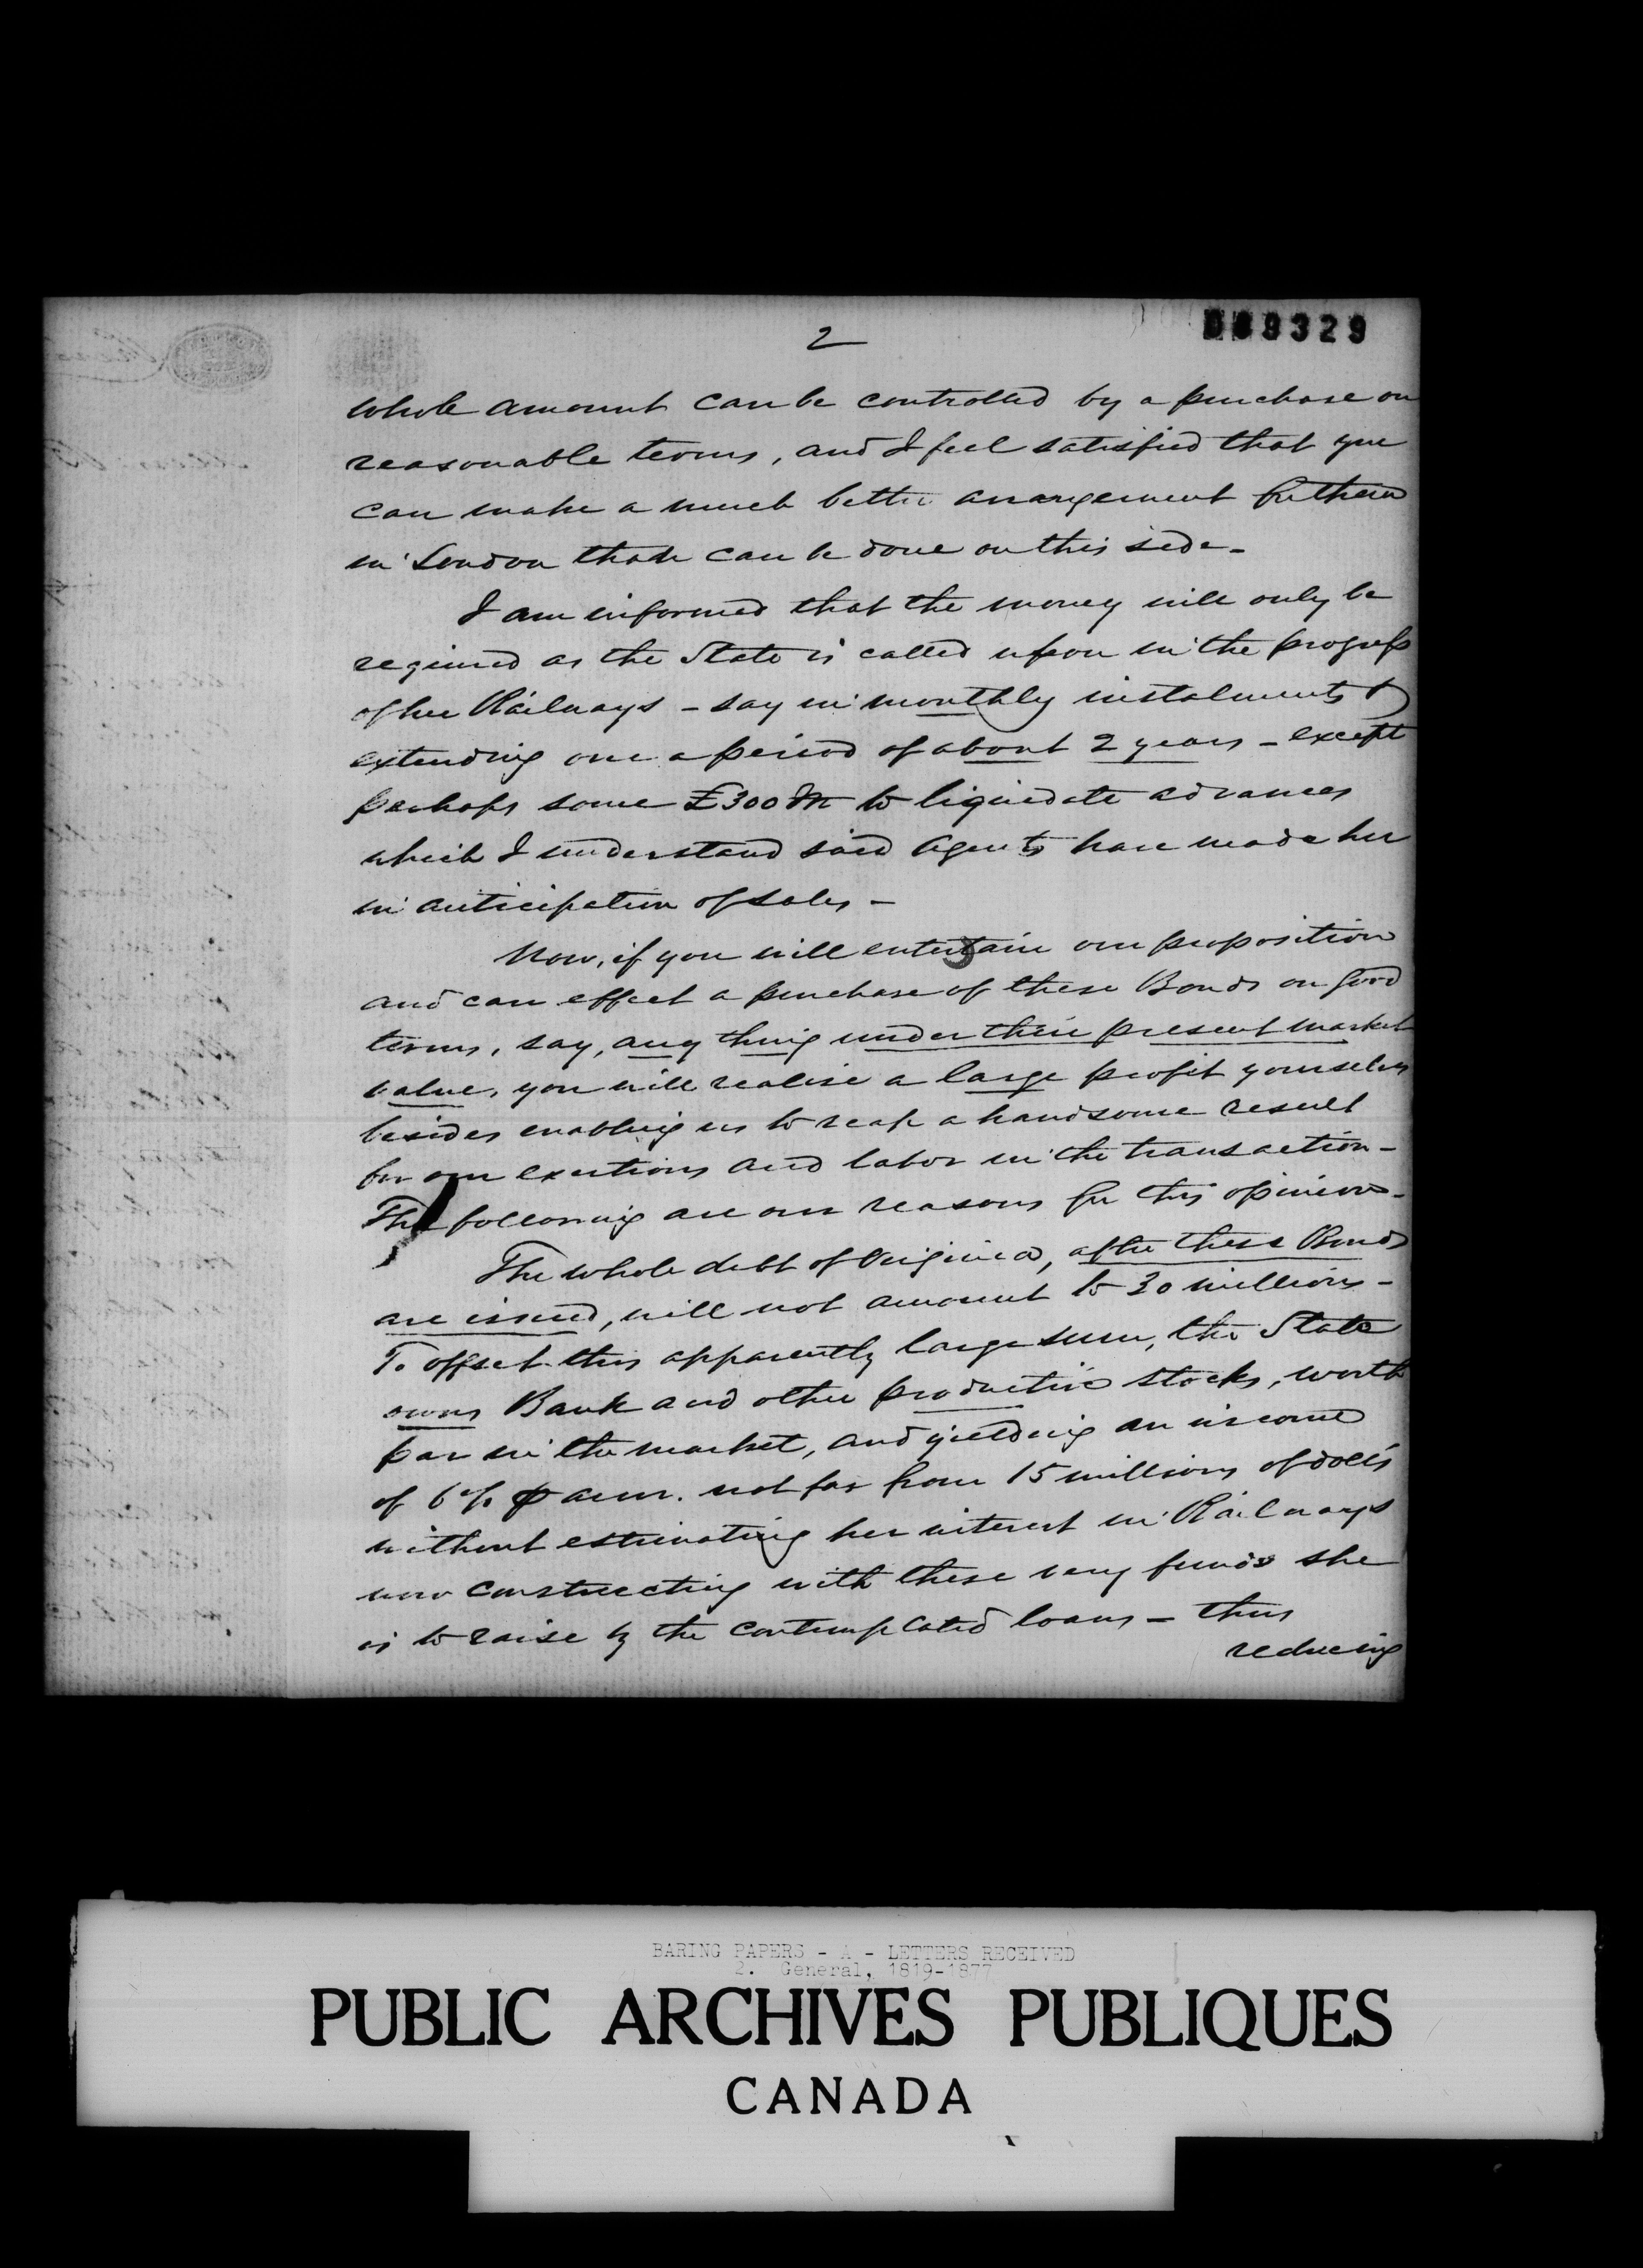 2
whole amount can be controlled by a purchase on
reasonable terms, and I feel satisfied that you
can make a much better arrangement for them
in London than can be done on this side -
I am informed that the money will only be
required as the State is called upon in the progress
of her Railways - say in monthly instalments &
extending over a period of about 2 years - except
perhaps some £300 M to liquidate advances
which I understand said Agents have made her
in anticipation of sales -
Now, if you will entertain our proposition
and can effect a purchase of these Bonds on good
terms, say, any thing under their present market
value, you will realise a large profit yourselves
besides enabling us to reap a handsome result
for our exertions and labor in the transaction -
The following are our reasons for this opinion -
The whole debt of Virginia, after these Bonds
are issued, will not amount to 30 millions -
To offset this apparently large sum, the State
owns Bank and other productive stocks, worth
par in the market, and yielding an income
of 6% p ann. not far from 15 millions of doll's
without estimating her interest in Railways
now constructing with these very funds she
is to raise by the contemplated loans - thus
reducing
BARING PAPERS - A - LETTERS RECEIVED
2. General, 1819-1877
PUBLIC ARCHIVES PUBLIQUES
CANADA